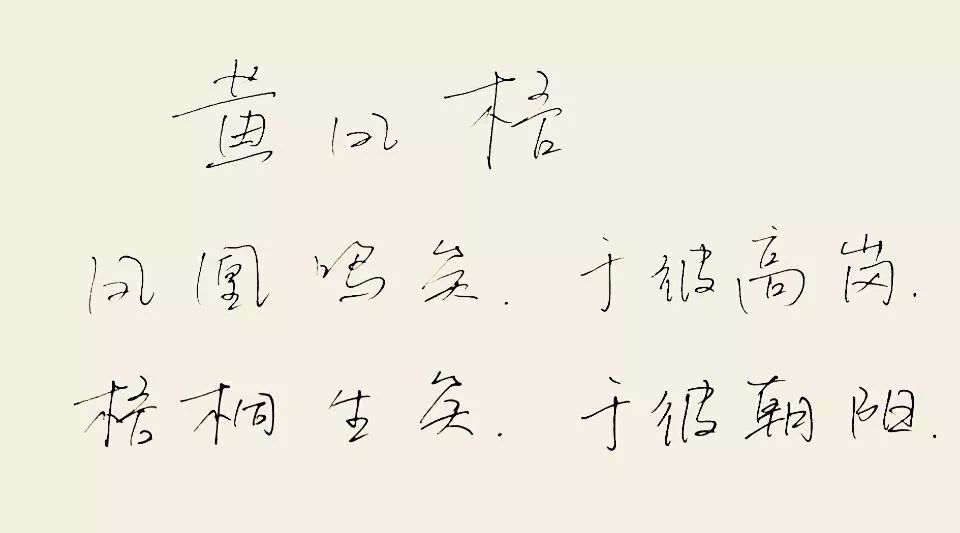 黄凤梧
凤凰鸣矣.于彼高岗.
梧桐生矣.于彼朝阳.